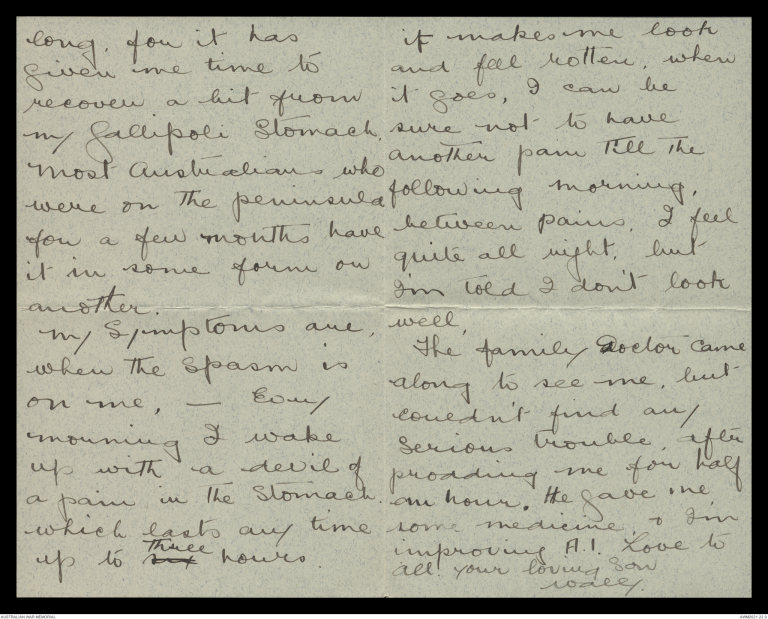 long, for it has
given me time to
recover a bit from
my Gallipoli Stomach.
Most Australians who
were on the peninsula
for a few months have
it in some form or
another.
My Symptoms are,
when the Spasm is
on me, — Every
morning I wake
up with a devil of
a pain in the Stomach.
which lasts any time
up to six three hours.
it makes me look
and feel rotten, when
it goes, I can be
sure not to have
another pain till the
following morning,
between pains, I feel
quite all right, but
I'm told I don't look
well,
The family Doctor came
along to see me, but
couldn't find any
serious trouble, after
prodding me for half
an hour. He gave me
some medicine, & I'm
improving A.1. Love to
all. your loving Son
Wally.
AUSTRALIAN WAR MEMORIAL